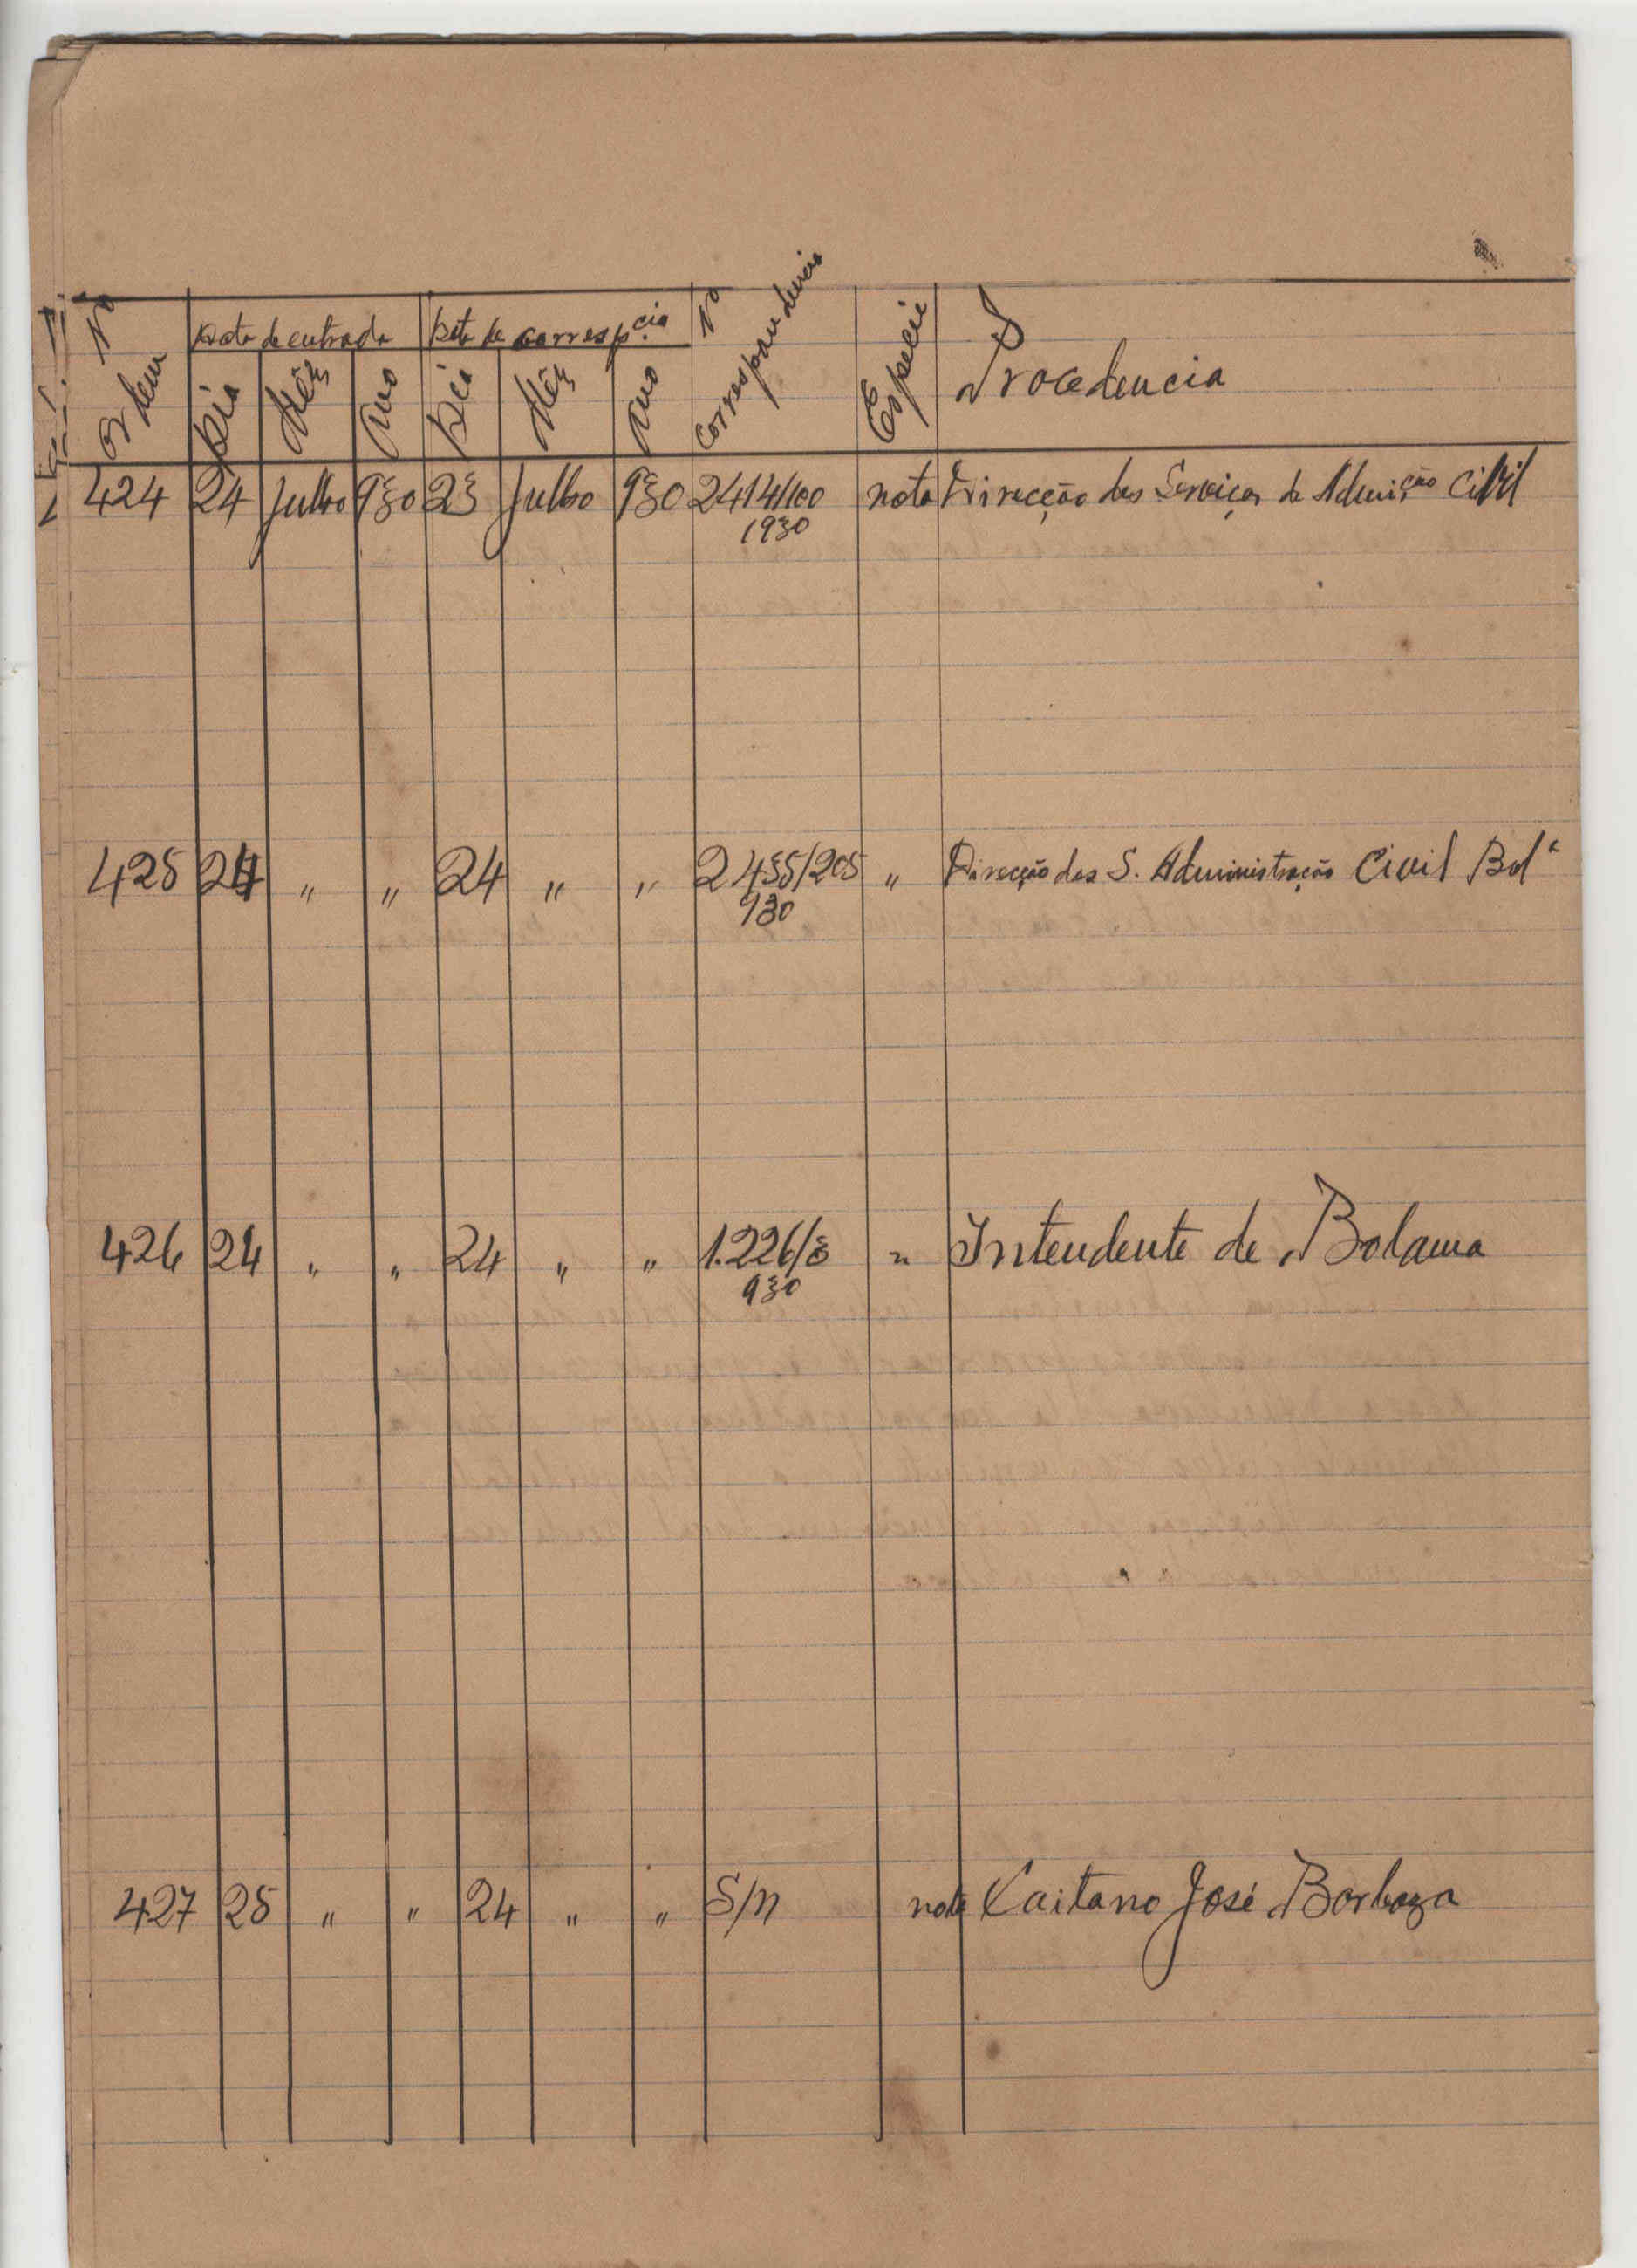 Nº Ordem | Data de entrada | Data de corresp.cia | Nº Correspondencia | Especie | Procedencia
Dia | Mês | Ano | Dia | Mês | Ano
424 | 24 | Julho | 930 | 23 | Julho | 930 | 2414/100 | nota | Direcção dos Serviços de Admição Civil
1930
425 | 24 | " | " | 24 | " | " | 2435/205 | " | Direcção dos S. Administração Civil Bolª
930
426 | 24 | " | " | 24 | " | " | 1.226/3 | " | Intendente de Bolama
930
427 | 25 | " | " | 24 | " | " | S/n | nota | Caitano José Barboza